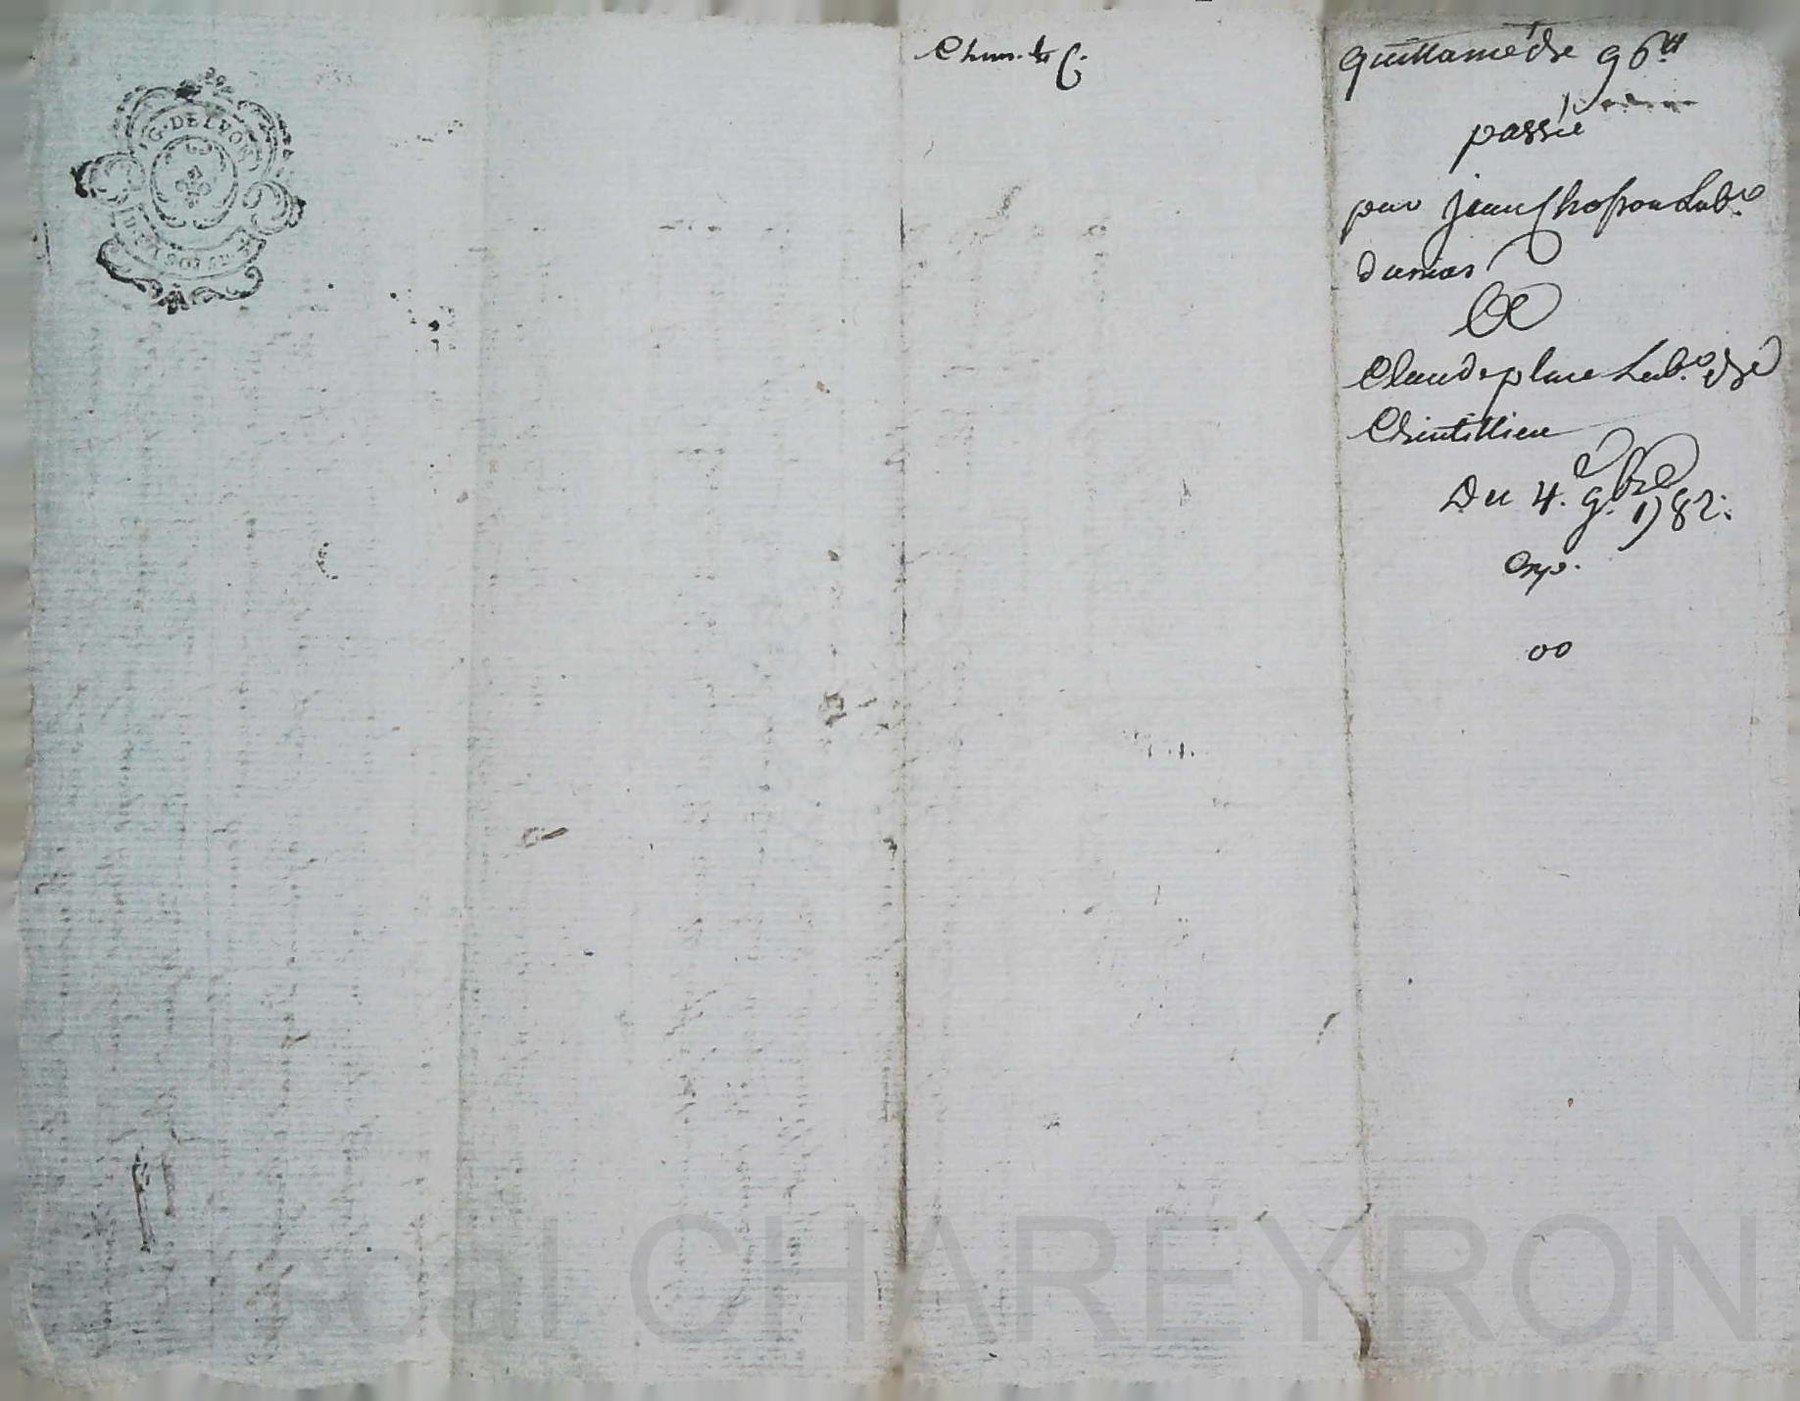 G. DE LYON
Quittance de 96 tt
passée
par Jean Chosson Lab.r
dumas
a
Claude place Lab.r de
Chintillieu
Du 4.e 9.bre 1782.
Exp.
00
cal CHAREYRON